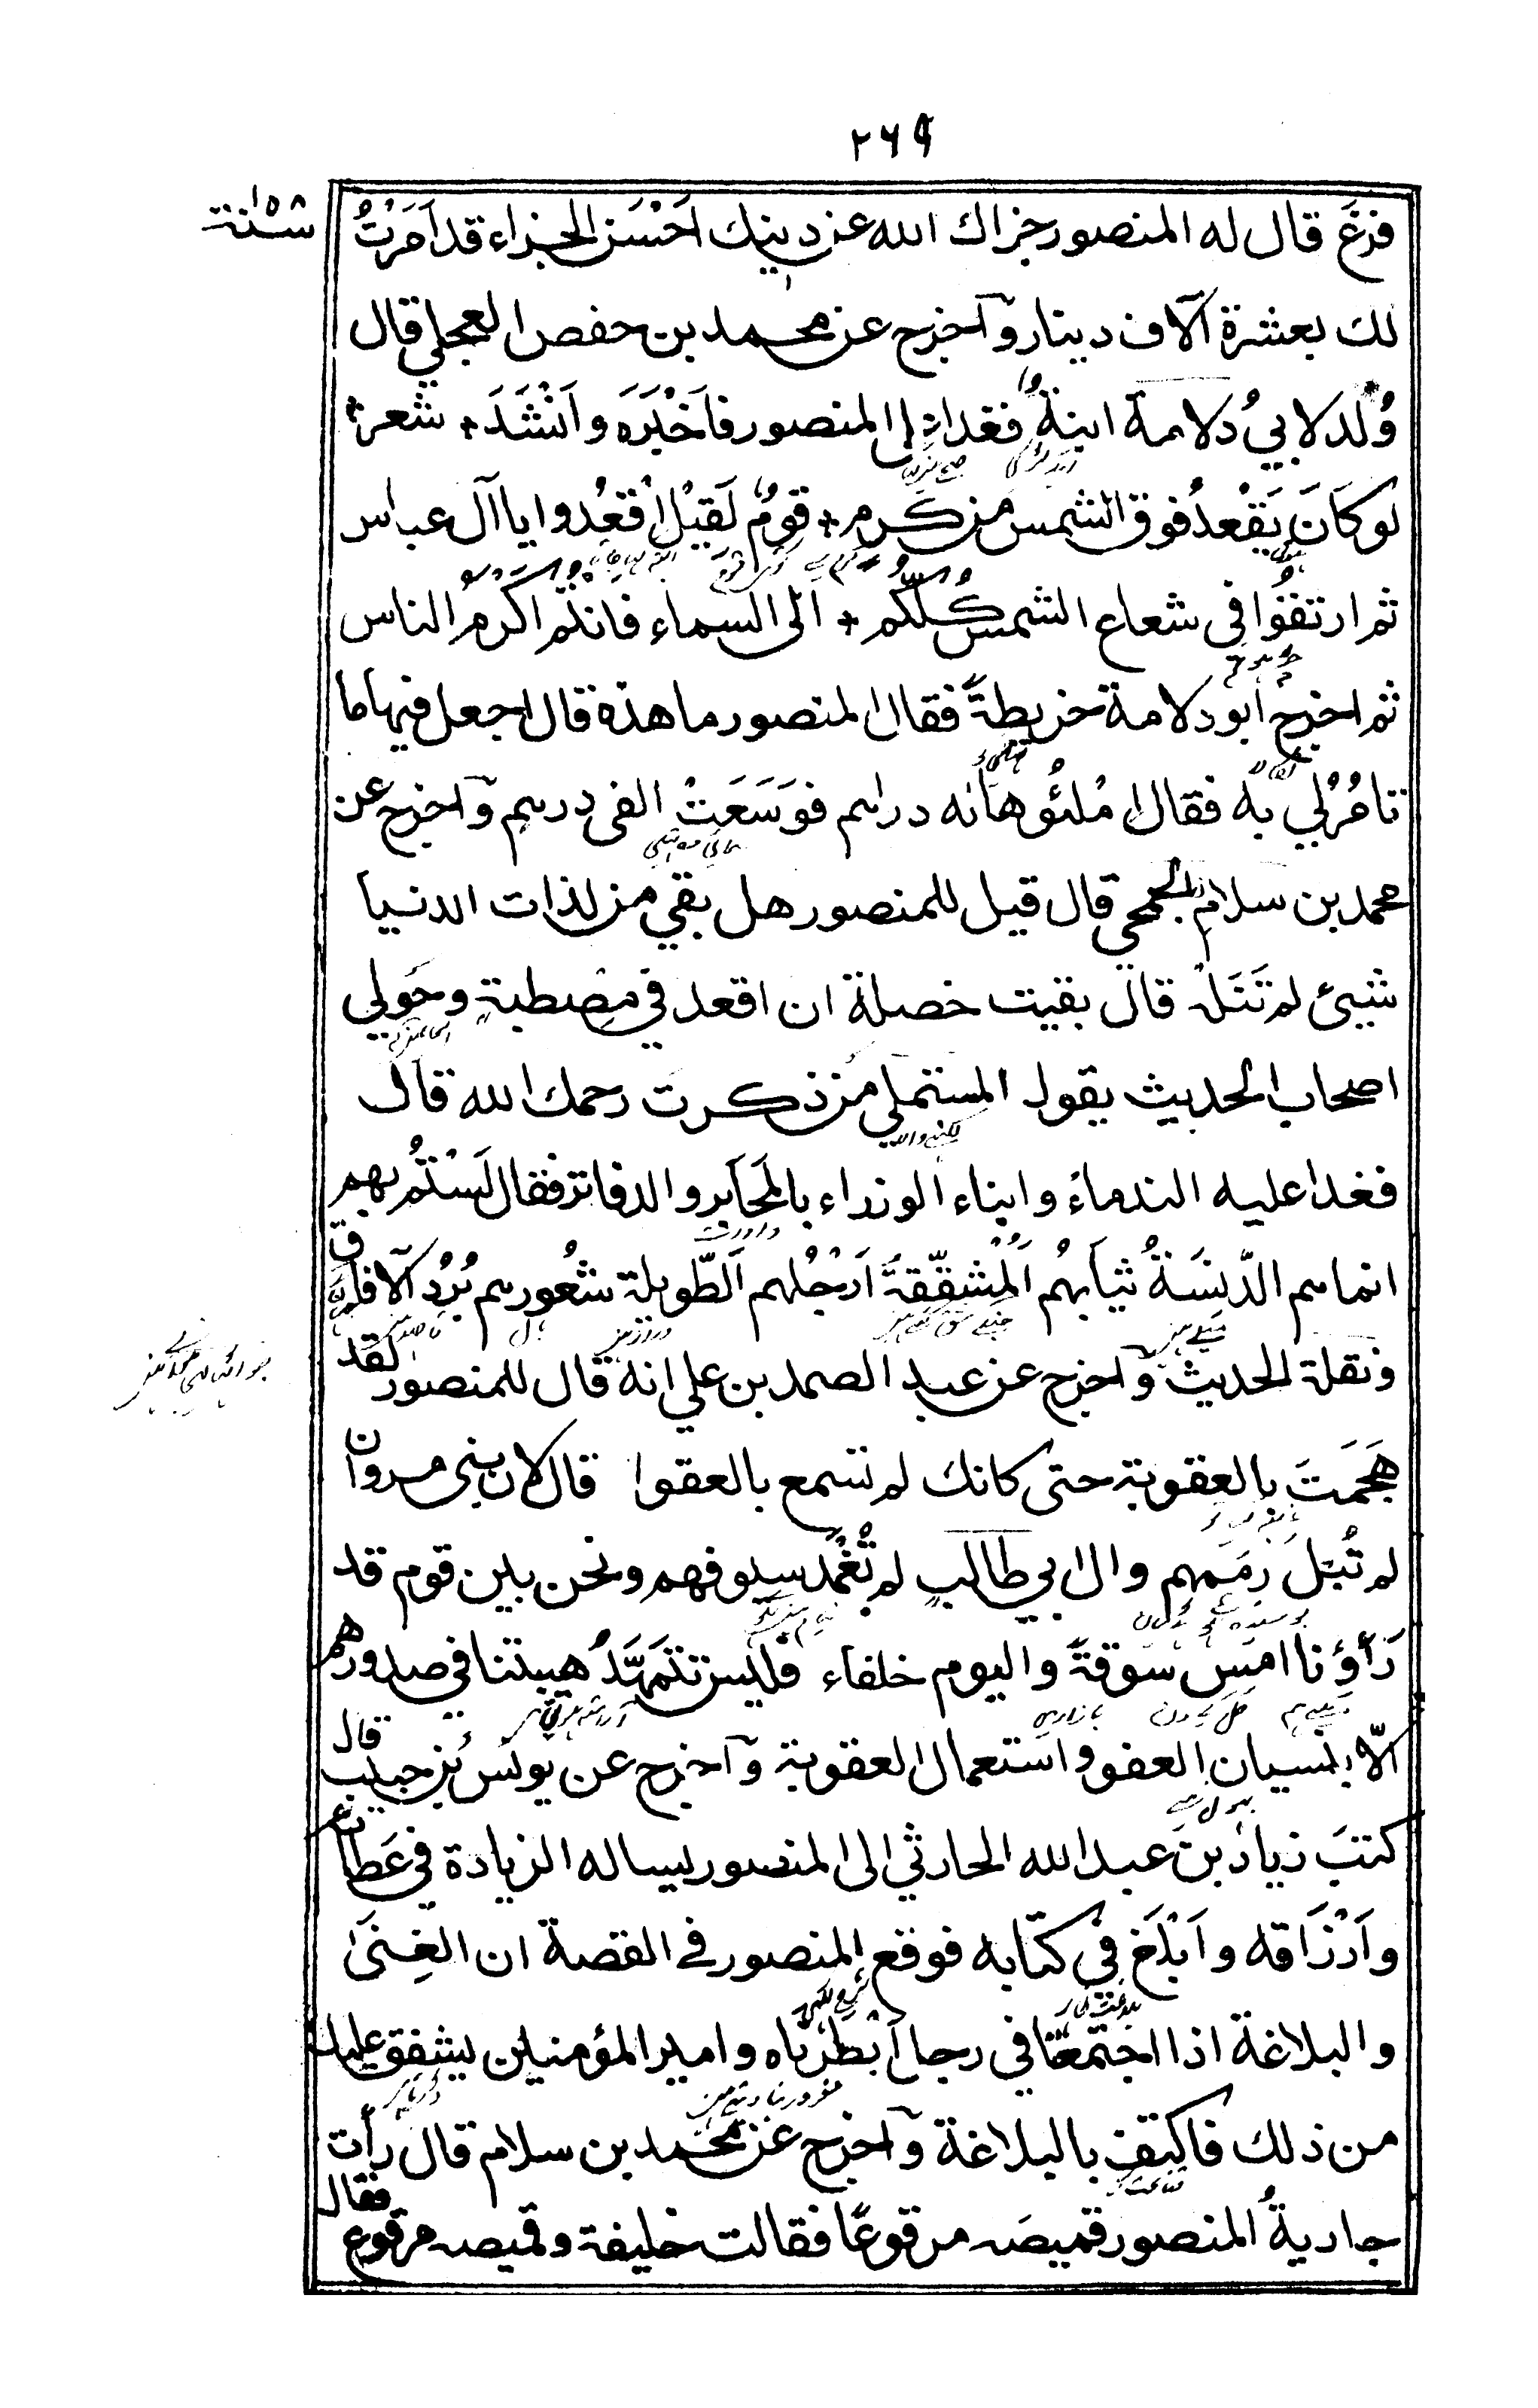 ٢٦٩
سنة ١٥٨
فرغ قال له المنصور جزاك الله عن دينك اَحْسَن الجزاء قد اَمَرْتُ
لك بعشرة آلاف دينار وآخرج عن محمد بن حفص العجلي قال
وُلد لابيُ دلامة ابنةٌ فغدا الى المنصور فاَخْبَرَه واَنْشَدَ * شعر *
لو كاَنَ يَقْعدُ فوق الشمس من كرم * قومٌ لَقِيْلَ اقْعُدوا يا آل عباس
ثم ارتقُوا في شعاع الشمس كُلّكُم * الى السماء فانتُم اَكْرَمُ الناس
ثم اخرج ابو دلامة خريطةً فقال المنصور ما هذه قال اجعل فيها ما
تامُرُ لي به فقال املئُوها له دراهم فوَسَعَتْ الفى درهم وآخرج عن
محمد بن سلام الجمحي قال قيل للمنصور هل بقي من لذات الدنيا
شيئ لم تَنَلْه قال بقيت خصلة ان اقعد في مصطبة وحَولي
اصحاب الحديث يقول المستملي من ذكرت رحمك الله قال
فغدا عليه الندماءُ وابناء الوزراء بالمَحَابر والدفاتر فقال لَسْتُم بهم
انما هم الدّنِسَةُ ثيابُهُم اَلمُشَقّقةُ اَرْجُلهم اَلطّويلة شُعُورهم بُرُد الآفاق
ونقلة الحديث وآخرج عن عبد الصمد بن علي انه قال للمنصور لقد
هَجَمَتَ بالعقوبة حتى كانك لم تسمع بالعفو ا قال لان بنى مروان
لم تُبْلَ رِمَمهم وال ابي طالب لم تُغْمَد سيوفهم ونحن بين قوم قد
رَأؤنا امسِ سوقةً واليوم خلفاء فليس تتمَهّدُ هيبتنا في صدورهم
الّا بنسيان العفو واستعمال العقوبة وآخرج عن يونس بن حبيب قال
كتبَ زيادُ بن عبد الله الحارثي الى المنصور يساله الزيادة في عَطائه
واَرْزَاقه واَبْلَغ في كتابه فوقع المنصور في القصة ان الغِنىٰ
والبلاغة اذا اجتمعَا في رجل اَبْطَرَاه وامير المؤمنين يشفق عليك
من ذلك فاكتف بالبلاغة وآخرج عن محمد بن سلام قال رأت
جاريةُ المنصور قميصَه مرقوعًا فقالت خليفة وقميصه مرقوع فقال